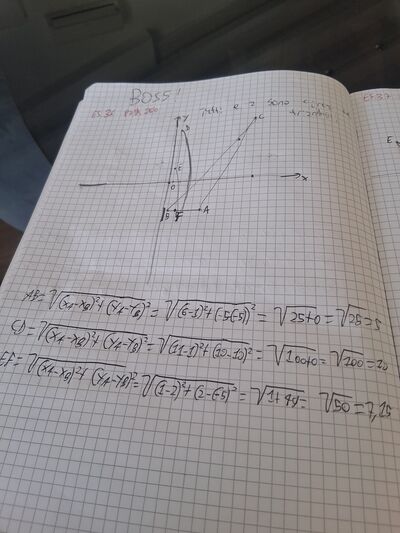 BOSS!
ES.36 PAG. 200
tutti e 2 sono
ES.37
y
C
D
E
O
x
B F A
E
AB=√(xA-xB)²+(yA-yB)² = √(6-1)²+(-5(-5))² = √25+0 = √25=5
CD=√(xA-xB)²+(yA-yB)² = √(11-1)²+(10-10)² = √100+0 = √100=10
EF=√(xA-xB)²+(yA-yB)² = √(1-2)²+(2-(-5))² = √1+49= √50=7,15